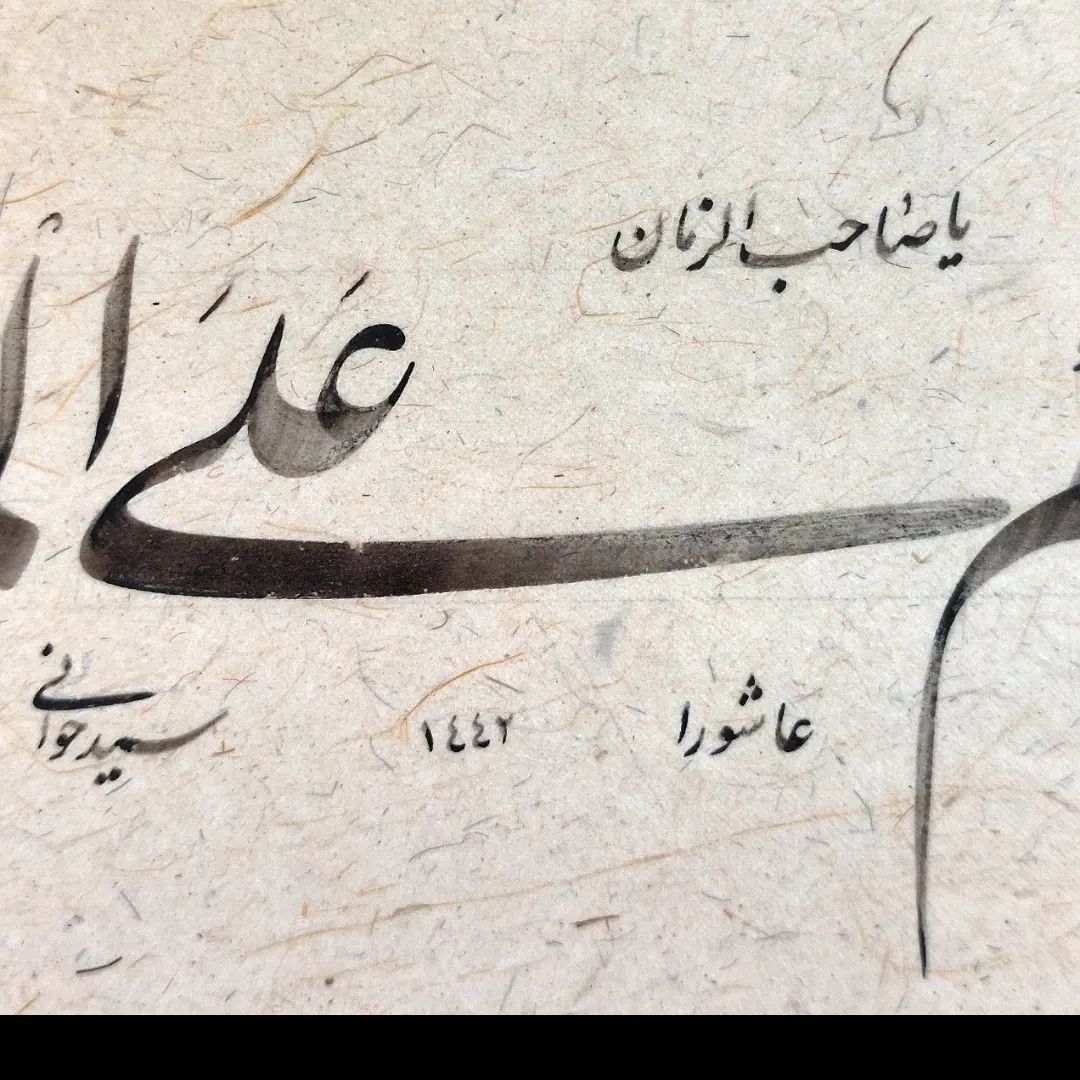 یا صاحب الزمان
عَلَی
عاشورا ١٤٤٢ سید جوانی